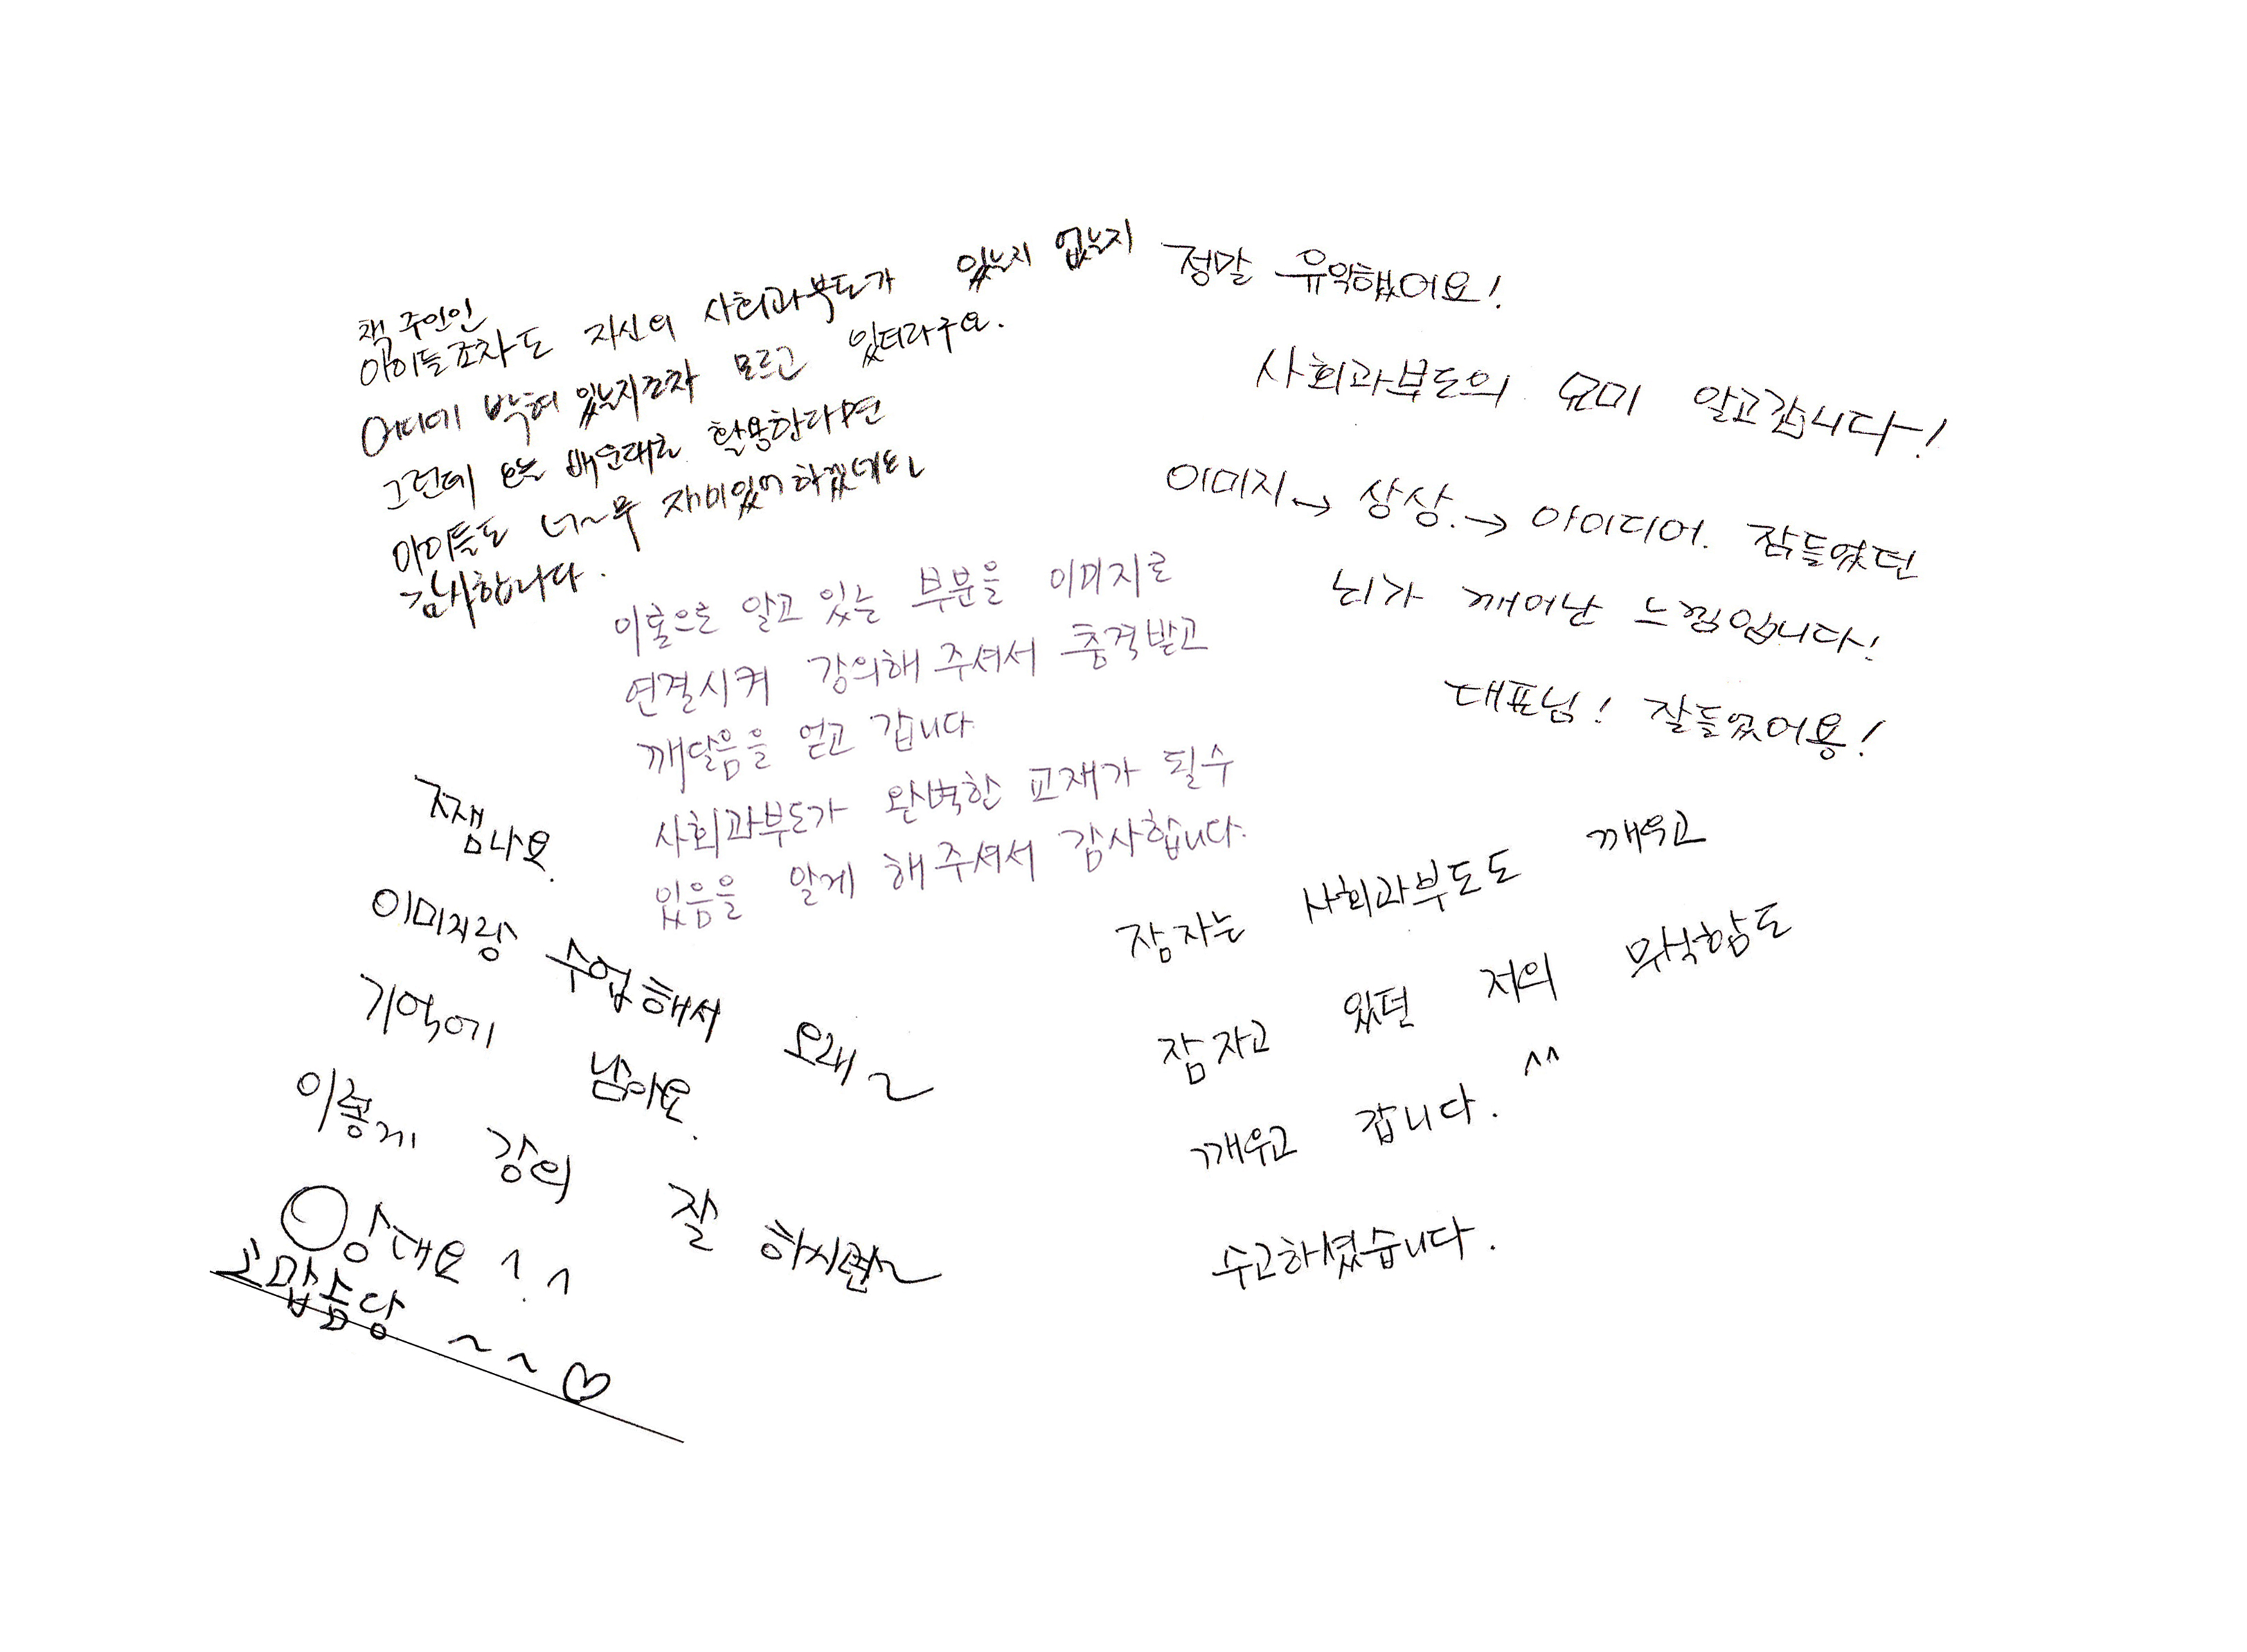 책 주인인
아이들조차도 자신의 사회과부도가 있는지 없는지
어디에 박혀 있는지조차 모르고 있더라구요.
그런데 오늘 배운대로 활용한다면
아이들도 너~무 재미있어 하겠네요~
감사합니다.
정말 유익했어요!
사회과부도의 묘미 알고갑니다~!
이미지→ 상상.→ 아이디어. 잠들었던
뇌가 깨어난 느낌입니다!
대표님! 잘들었어용!
이홀으로 알고 있는 부분을 이미지로
연결시켜 강의해 주셔서 충격받고
깨달음을 얻고 갑니다.
사회과부도가 완벽한 교재가 될수
있음을 알게 해주셔서 감사합니다.
잼나요.
이미지랑 수업해서 오래~
기억에 남아요.
이렇게 강의 잘 하시면~
앙대요^.^
고맙습당~~♡
잠자는 사회과부도도 깨우고
잠자고 있던 저의 무식함도
깨우고 갑니다. ^^
수고하셨습니다.